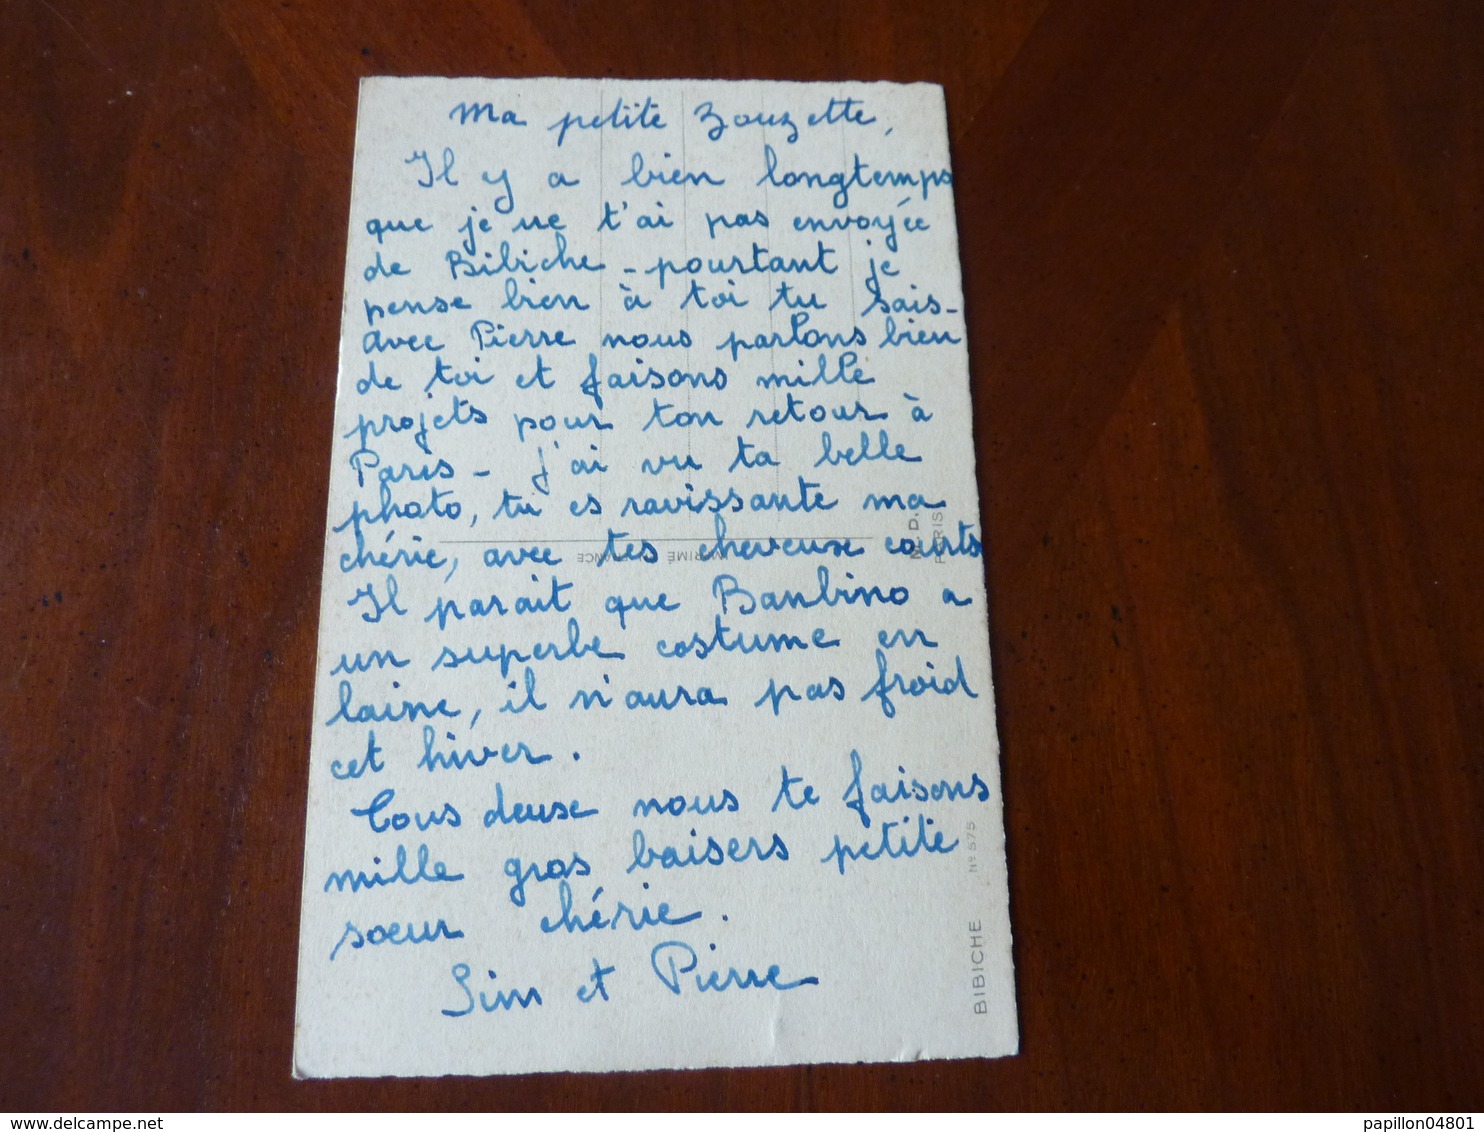 Ma petite Zouzette,
Il y a bien longtemps
que je ne t'ai pas envoyée
de Bibiche - pourtant je
pense bien à toi tu sais -
avec Pierre nous parlons bien
de toi et faisons mille
projets pour ton retour à
Paris - j'ai vu ta belle
photo, tu es ravissante ma
chérie, avec tes cheveux courts
Il parait que Banbino a
un superbe costume en
laine, il n'aura pas froid
cet hiver.
Tous deux nous te faisons
mille gros baisers petite
sœur chérie.
Sim et Pierre
M. D.
PARIS
IMPRIMÉ FRANCE
BIBICHE Nº 575
delcampe.net
papillon04801